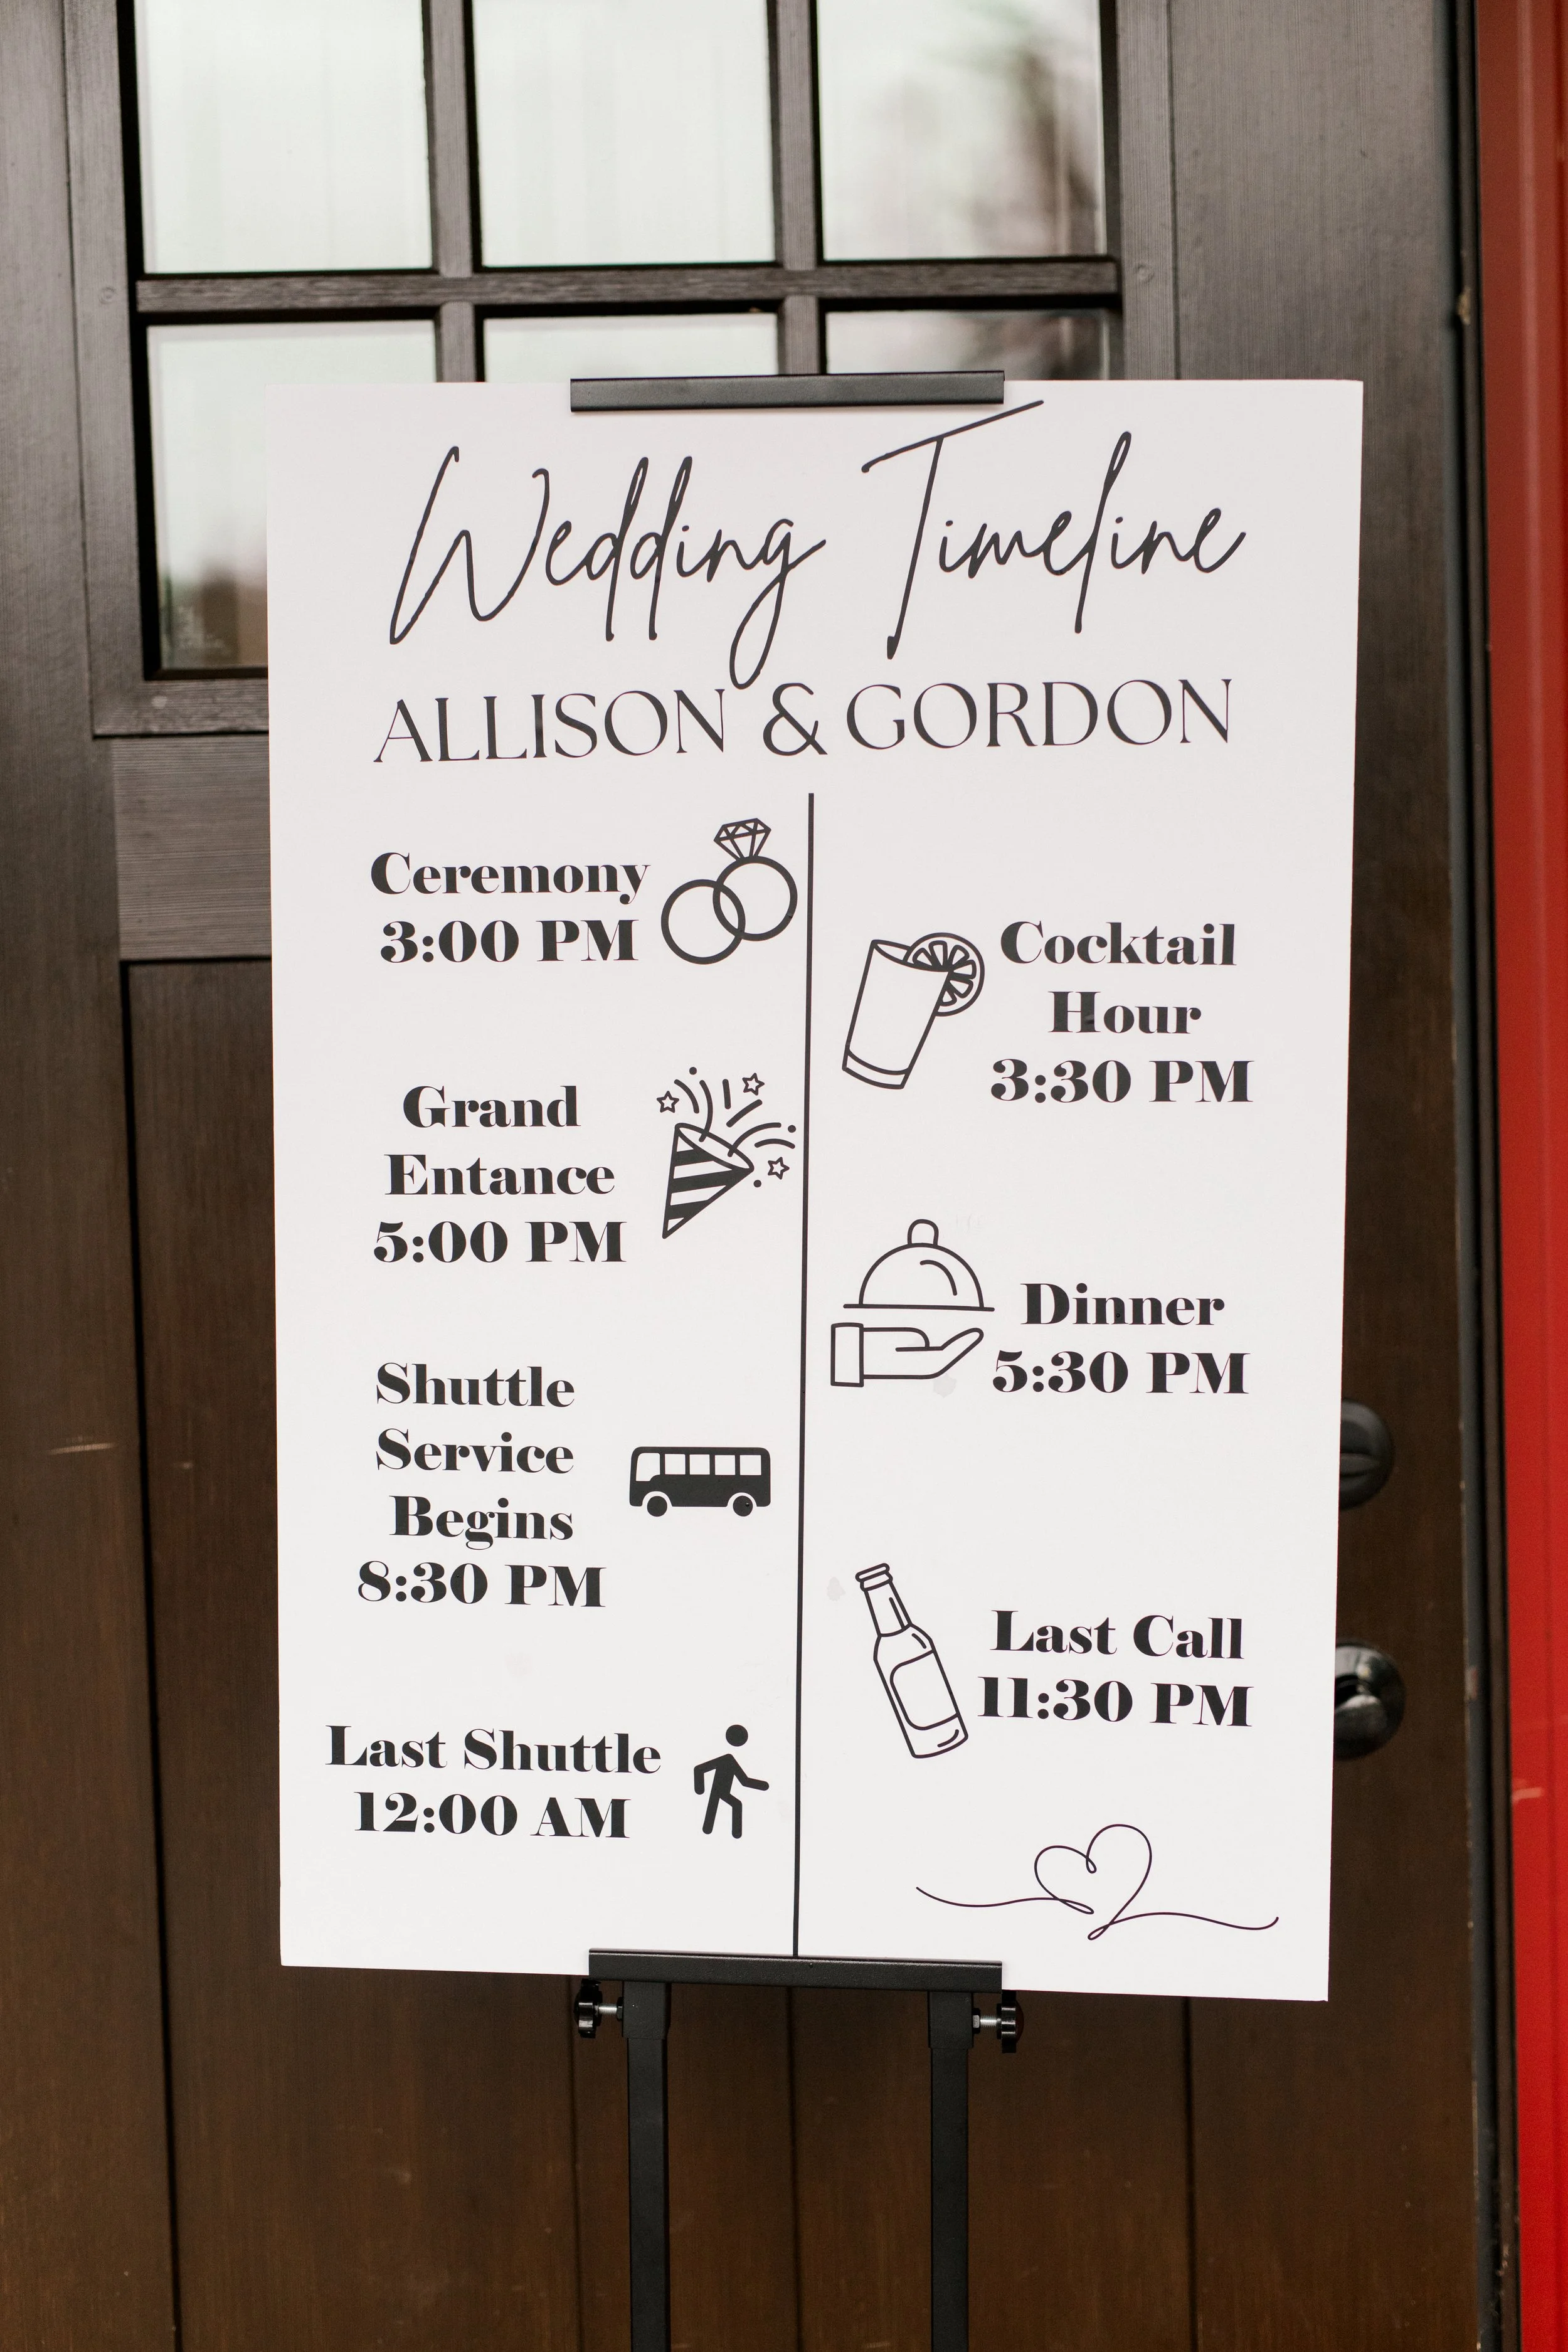 Wedding Timeline
ALLISON & GORDON
Ceremony
3:00 PM
Cocktail
Hour
3:30 PM
Grand
Entance
5:00 PM
Dinner
5:30 PM
Shuttle
Service
Begins
8:30 PM
Last Call
11:30 PM
Last Shuttle
12:00 AM